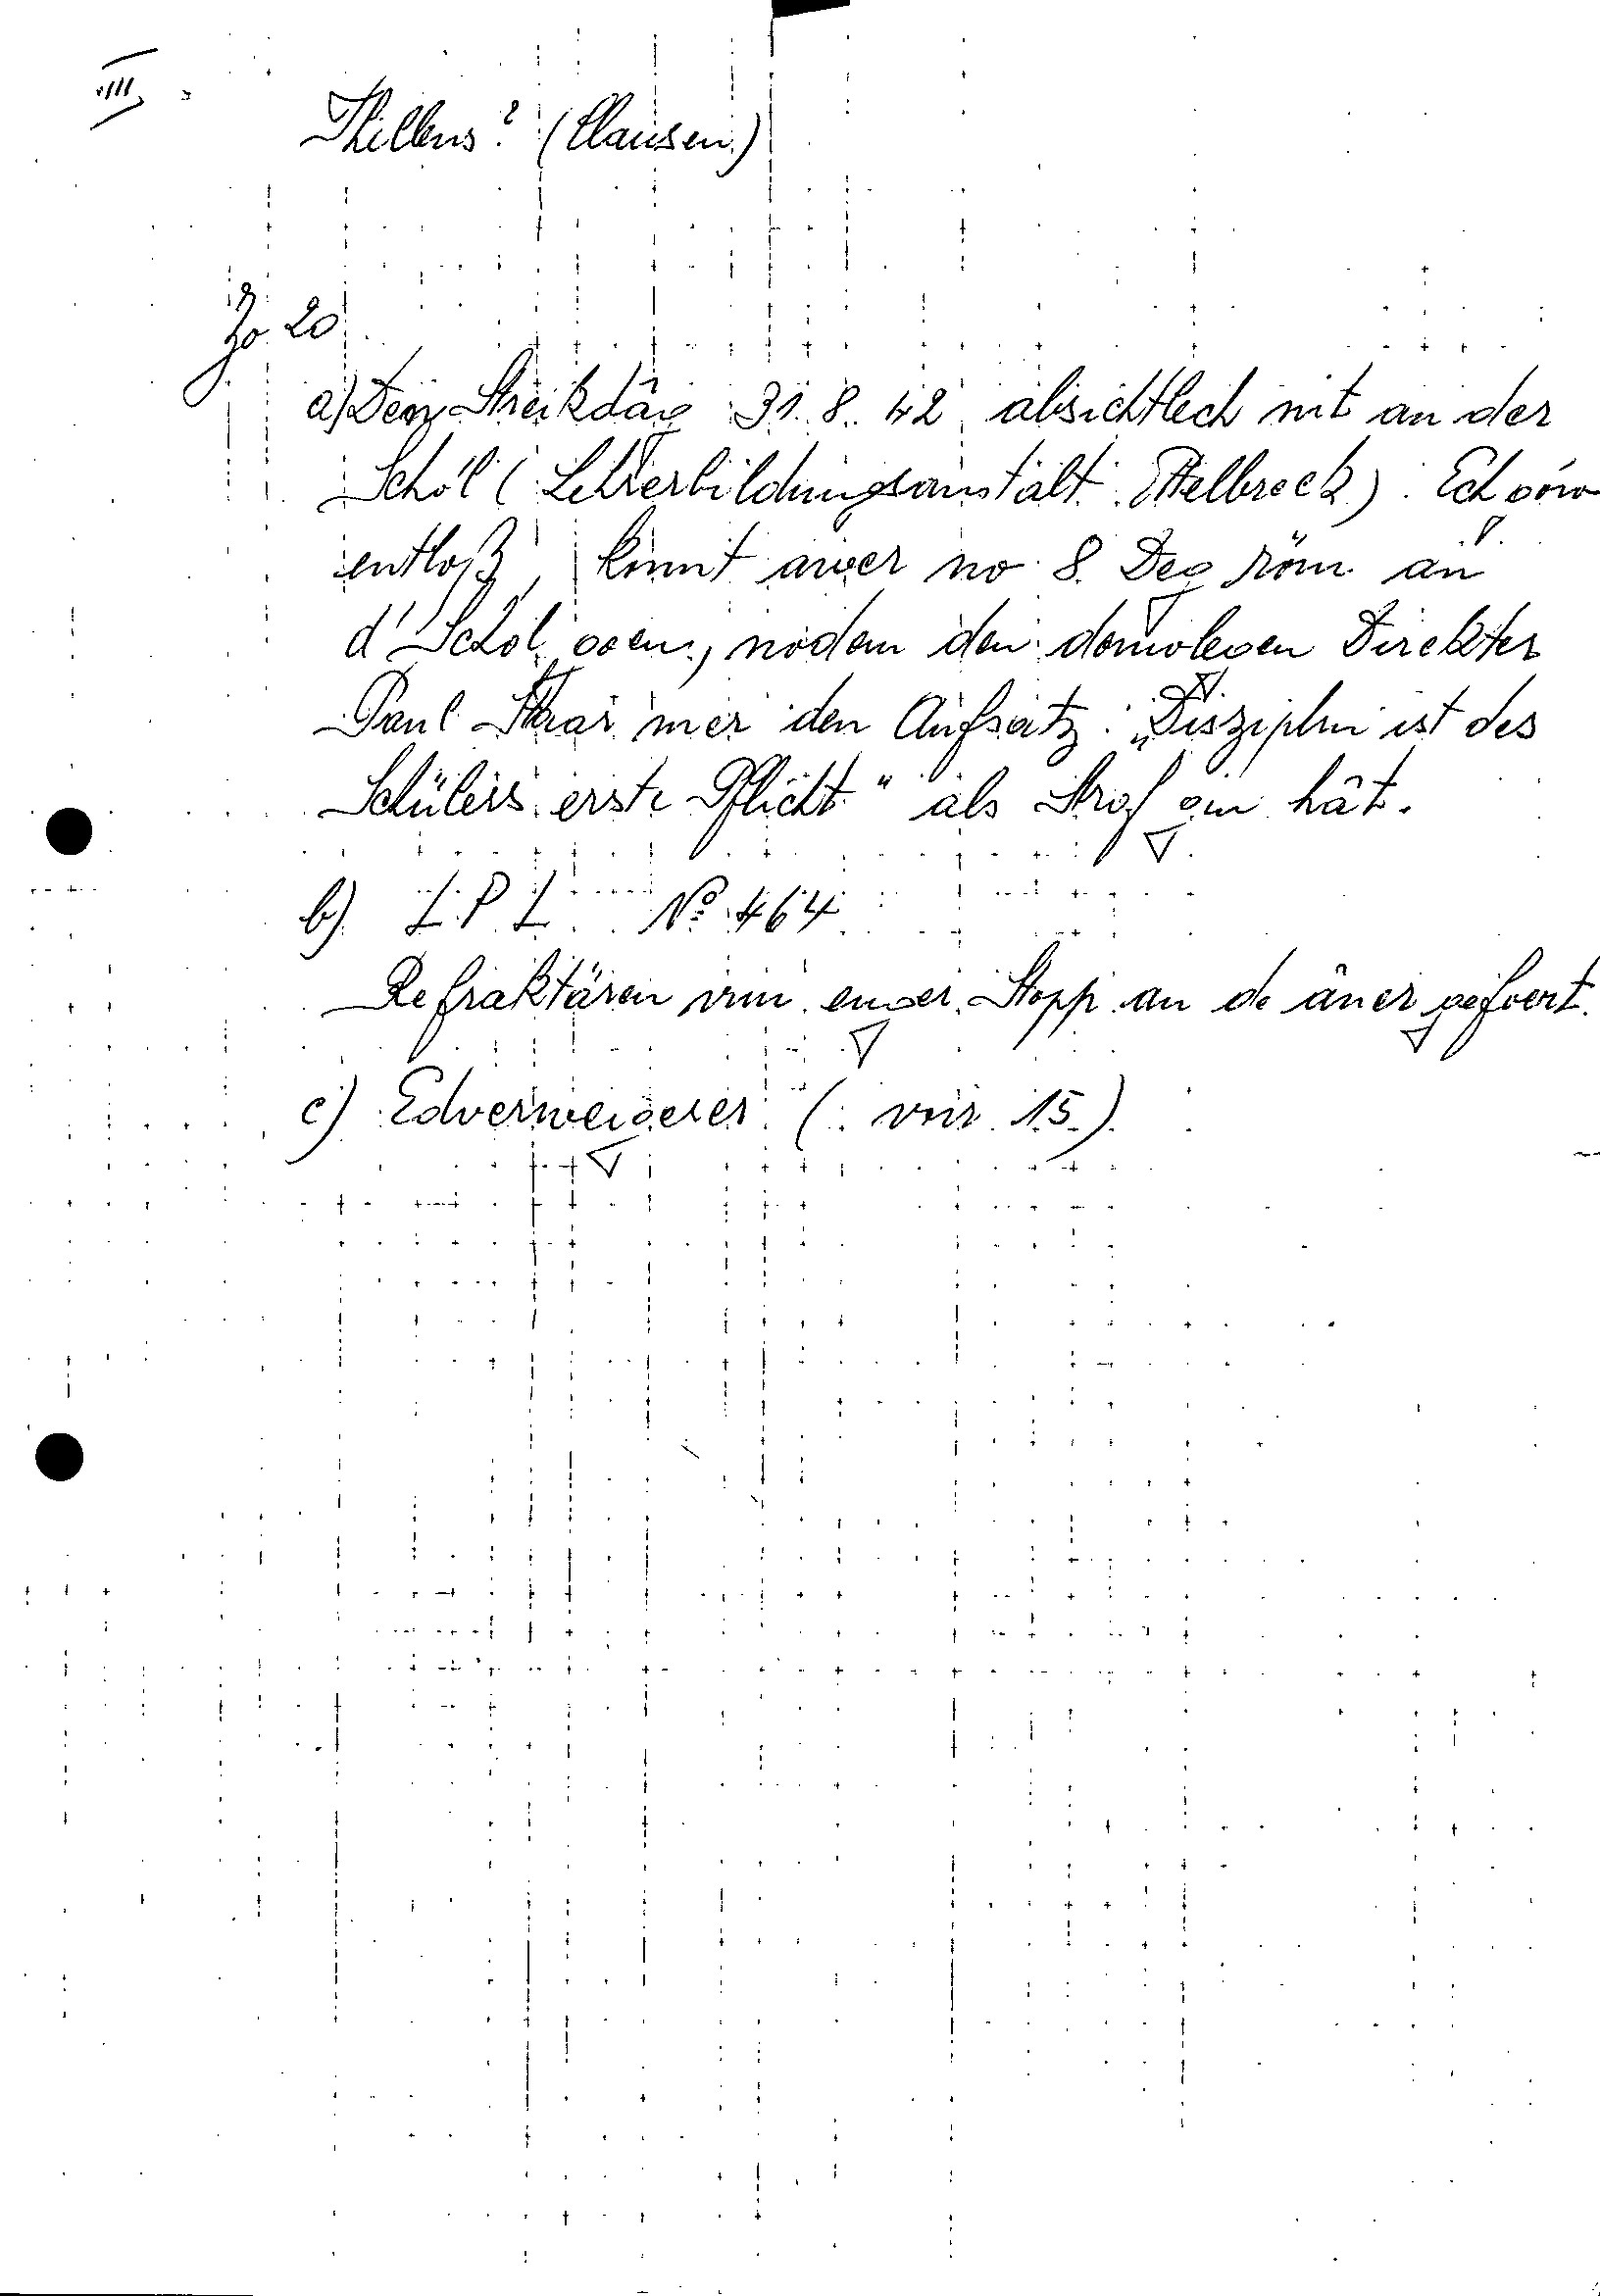 VIII
Thillens? (Clausen)
Zo 20
a) Den Streikdâg 31.8.42 absichtlech nit an der
Schôl (Lehrerbildungsanstalt Ettelbreck). Ech
entloß, konnt awer no 8 Deg röm an
d'Schôl goen, nodem den domolegen Direkter
Paul Staar mer den Aufsatz: „Disziplin ist des
Schülers erste Pflicht“ als Strof gin hât.
b) L.P.L. N° 464
Refraktären vun enger Stopp an de âner gefoert.
c) Edverweigerer (: voir 15.)